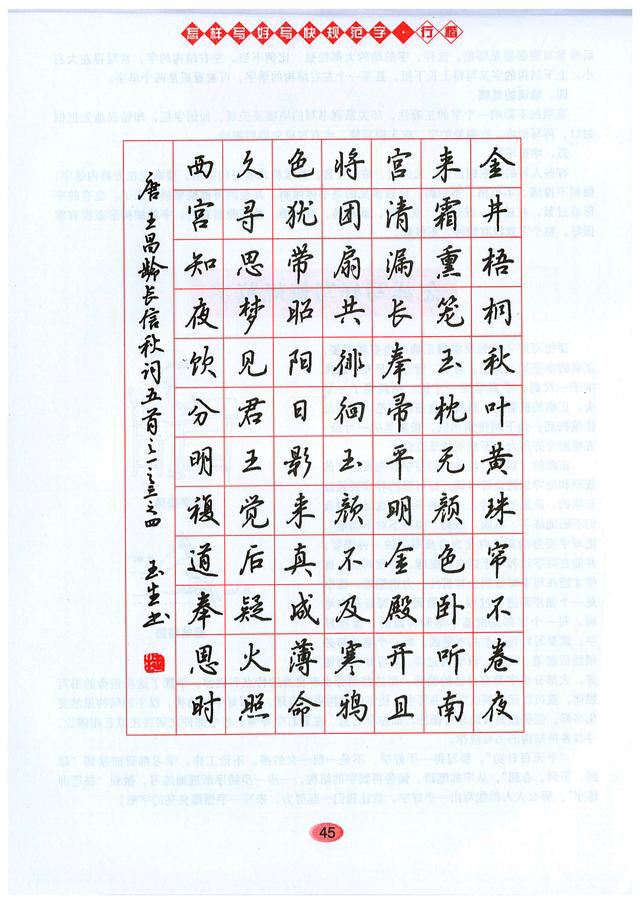 怎样写好写快规范字·行楷
金井梧桐秋叶黄珠帘不卷夜
来霜熏笼玉枕无颜色卧听南
宫清漏长奉帚平明金殿开且
将团扇共徘徊玉颜不及寒鸦
色犹带昭阳日影来真成薄命
久寻思梦见君王觉后疑火照
西宫知夜饮分明複道奉恩时
唐王昌龄长信秋词五首之一之三之四 玉生书
45